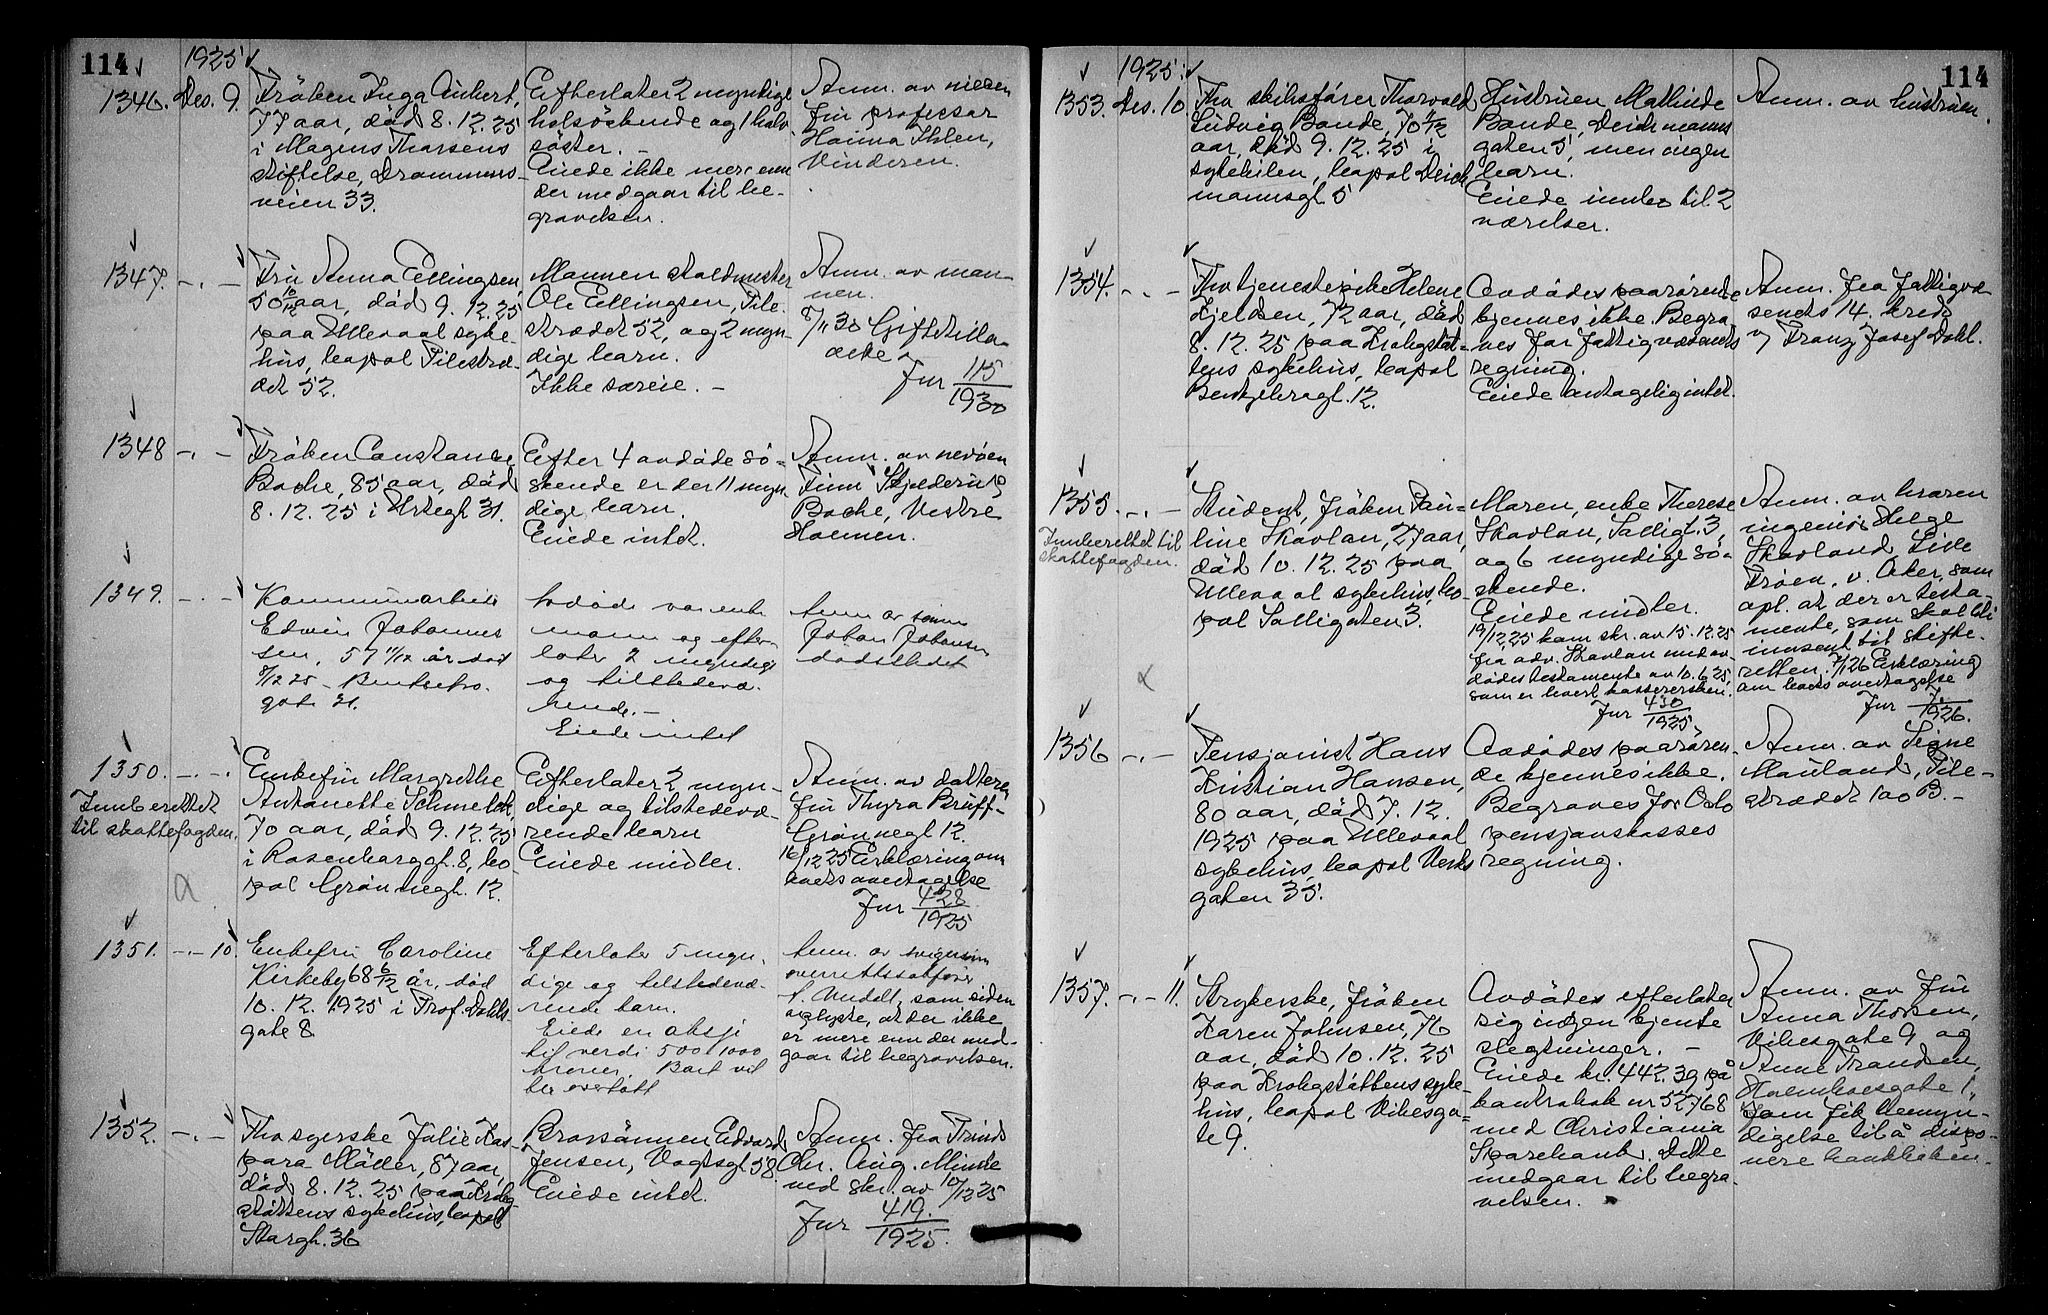 114
1925
1346. Des. 9.
Frøken Inga Aubert,
77 aar, død 8.12.25
i Mogens Thorsens
stiftelse, Drammens-
veien 33.
Efterlater 2 myndige
halvsøskende og 1 halv
søster. –
Eiede ikke mere enn
der medgaar til be-
gravelsen.
Anm. av niesen
fru professor
Hanna Ihlen,
Vinderen.
1347. -.-
Fru Anna Ellingsen
50 10/12 aar, død 9.12.25
paa Ullevaal syke-
hus, bopæl Pilestræ-
det 52.
Mannen staldmester
Ole Ellingsen, Pile-
strædet 52, og 2 myn-
dige barn.
Ikke særeie. –
Anm. av man-
nen.
8/11 30
Jur 115/1930
1348 -.-
Frøken Constance
Boche, 85 aar, død
8.12.25 i 31.
Efter 4 avdøde sø-
skende er der 11 myn-
dige barn.
Eiede intet.
Anm. av nevøen
Finn Skjelderup
Boche, Vestre
Holmen.
1349. -.-
Kommunearbeider
Edvin Johannes
sen, 57 11/12 år død
8/12 25 – Bentsebro.
gate 31.
Avdøde var enke
mann og efter-
later 2 myndige
og tilstedevæ.
rende. –
Eiede intet
Anm av sønn
Johan Johansen
dødsstedet
1350. -.-.
Innberettet
til skattefogden.
Enkefru Margrethe
Antonette Schmelck,
70 aar, død 9.12.25
i Rosenborggt. 8, bo
pæl Grønnegt. 12.
Efterlater 2 myn-
dige og tilstedevæ-
rende barn
Eiede midler.
Anm. av datteren
fru Thyra Bruff-
Grønnegt 12.
16/12 25 Erklæring om
boets overtagelse
Jur 428/1925
1351. -.- 10.
Enkefru Caroline
Kirkeby 68 6/12 år, død
10.12.1925 i Prof. Dahls-
gate 8
Efterlater 5 myn.
dige og tilstedevæ.
rende barn.
Eiede en aksje
til verdi 500 1000
kroner. Boet vil
bli overtatt
Anm. av svigersønn
overrettssakfører
som siden
oplyste, at der ikke
er mere enn der med-
gaar til begravelsen.
1352. -.-
Fhv syerske Julie Kas
para Møller, 87 aar,
død 8.12.25 paa Krohg-
støttens sykehus, bopæl
Storgt. 36
Brorsønnen Edvard
Jensen, Vogtsgt 58.
Eiede intet.
Anm. fra Frims
Chr. Aug. Minde
ved skr. av 10/12 25
Jur 419./1925.
114
1925.
1353. Des. 10.
Fhv skibsfører Thorvald
Ludvig Bonde, 70 11/12
aar, død 9.12.25 i
sykebilen, bopæl Deich
mannsgt. 5
Hustruen Mathilde
Bonde, Deichmanns
gaten 5, men ingen
barn.
Eiede innbo til 2
værelser.
Anm. av hustruen.
1354. -.-
Fhv tjenestepike Helene
Kjeldsen, 72 aar, død
8.12.25 paa Krohgstøt-
tens sykehus, bopæl
Bentsebrogt. 12.
Avdødes paarørende
kjennes ikke. Begra-
ves for fattigvæsenets
regning.
Eiede antagelig intet.
Anm. fra Fattigvæ
senets 14. kreds
v/ Franz Josef Dahl.
1355. -.-
Innberettet til
skattefogden.
Student, frøken Pau-
line Skavlan, 27 aar,
død 10.12.25 paa
Ullevaal sykehus, bo-
pæl Solligaten 3.
Moren, enke Therese
Skavlan, Solligt. 3,
og 6 myndige sø-
skende.
Eiede midler.
19/12 25 kom skr. av 15.12.25
fra adv. Skavlan med av-
dødes testamente av 10.6.25,
som er levert kassereren.
Jur 430/1925.
Anm. av broren
ingeniør Helge
Skavland, Lille
Frøen, v. Aker, som
opl. at der er testa-
mente, som skal bli
innsent til skifte-
retten. 7/1 26 Erklæring
om boets overtagelse
Jur 7./1926.
1356 -.-
Pensjonist Hans
Kristian Hansen,
80 aar, død 7.12.
1925 paa Ullevaal
sykehus, bopæl Verks
gaten 35.
Avdødes paarøren-
de kjennes ikke.
Begraves for Oslo
pensjonskasses
regning.
Anm. av Signe
Mauland, Pile-
strædet 100 B. –
1357. -.- 11.
Strykerske, frøken
Karen Johnsen, 76
aar, død 10.12.25
paa Krohgstøttens syke-
hus, bopæl Vibesga-
te 9.
Avdøde efterlater
sig ingen kjente
slegtninger. –
Eiede kr. 442.39 på
bankbok nr 52768
med Christiania
Sparebank. Dette
medgaar til begra-
velsen.
Anm. av fru
Anna Thorsen,
Vibesgate 9 og
Anne Trondsen,
Holmboesgate 1,
som fik bemyn-
digelse til å dispo-
nere bankboken.